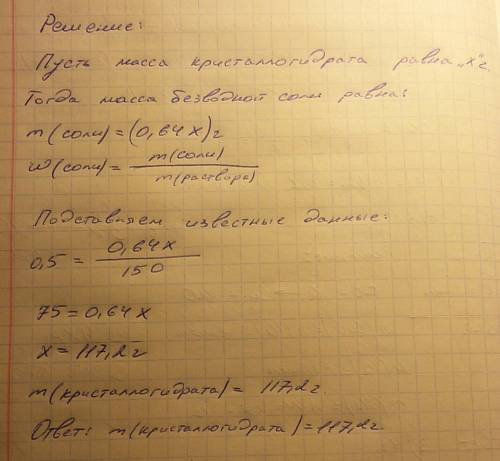 Решение:
Пусть масса кристаллогидрата равна „x" г
Тогда масса безводной соли равна:
m(соли) = (0,64x) г
ω(соли) = m(соли) / m(раствора)
Подставляем известные данные:
0,5 = 0,64x / 150
75 = 0,64x
x = 117,2 г
m(кристаллогидрата) = 117,2 г.
Ответ: m(кристаллогидрата) = 117,2 г.